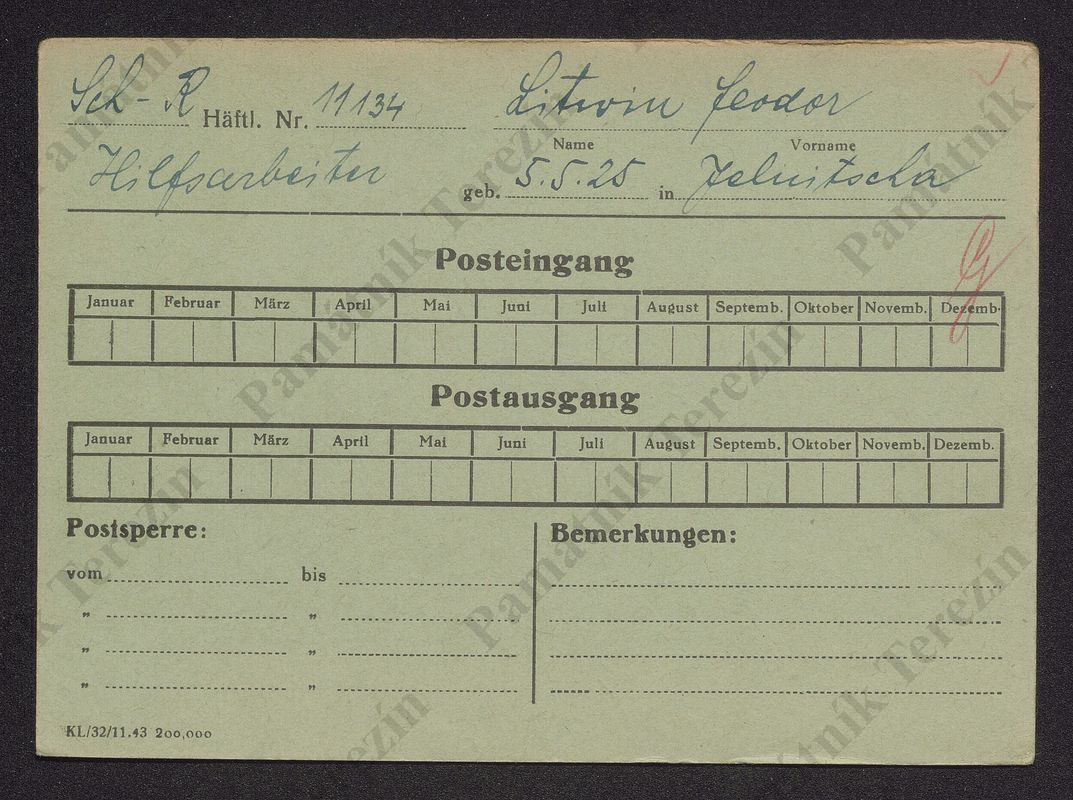 Sch-R Häftl. Nr. 11134 Litwin Feodor
Name Vorname
Hilfsarbeiter geb. 5.5.25 in Jelnitscha
Posteingang
Januar Februar März April Mai Juni Juli August Septemb. Oktober Novemb. Dezemb.
Postausgang
Januar Februar März April Mai Juni Juli August Septemb. Oktober Novemb. Dezemb.
Postsperre: Bemerkungen:
vom bis
„ „
„ „
„ „
KL/32/11.43 200,000
Památník Terezín
Památník Terezín
Památník Terezín
Památník Terezín